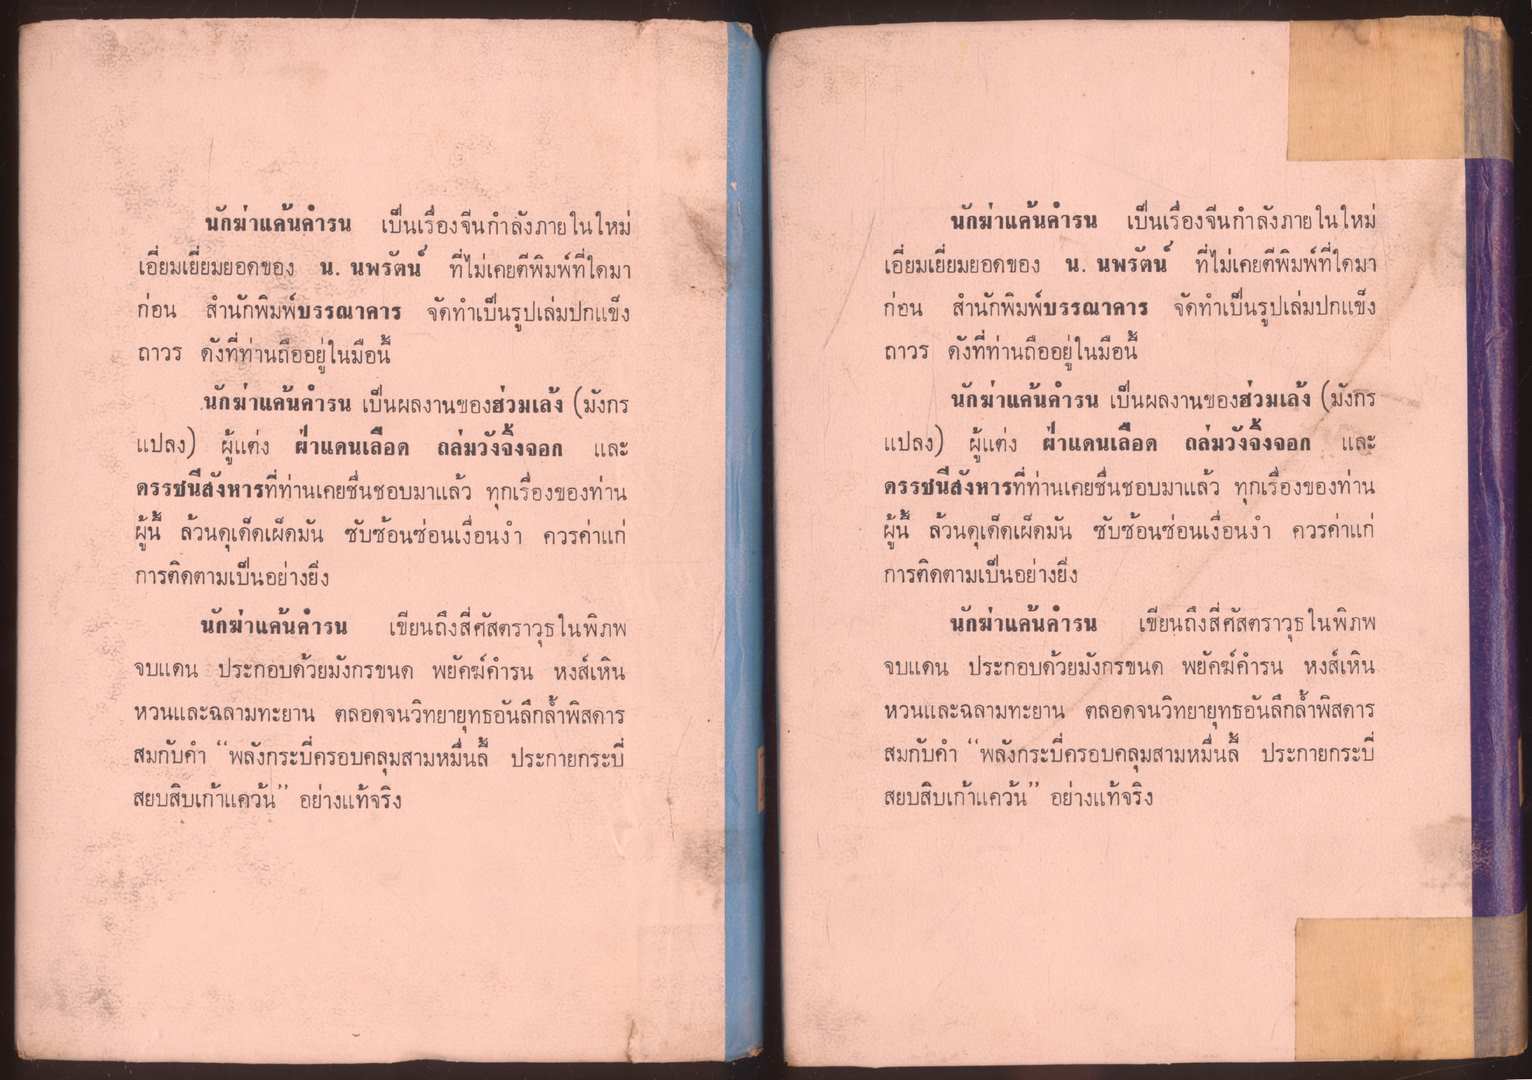 นักฆ่าแค้นคำรน เป็นเรื่องจีนกำลังภายในใหม่
เอี่ยมเยี่ยมยอดของ น. นพรัตน์ ที่ไม่เคยตีพิมพ์ที่ใดมา
ก่อน สำนักพิมพ์บรรณาคาร จัดทำเป็นรูปเล่มปกแข็ง
ถาวร ดังที่ท่านถืออยู่ในมือนี้
นักฆ่าแค้นคำรน เป็นผลงานของฮ่วมเล้ง (มังกร
แปลง) ผู้แต่ง ฝ่าแดนเลือด ถล่มวังจิ้งจอก และ
ดรรชนีสังหารที่ท่านเคยชื่นชอบมาแล้ว ทุกเรื่องของท่าน
ผู้นี้ ล้วนดุเด็ดเผ็ดมัน ซับซ้อนซ่อนเงื่อนงำ ควรค่าแก่
การติดตามเป็นอย่างยิ่ง
นักฆ่าแค้นคำรน เขียนถึงสี่ศัสตราวุธในพิภพ
จบแดน ประกอบด้วยมังกรขนด พยัคฆ์คำรน หงส์เหิน
หวนและฉลามทะยาน ตลอดจนวิทยายุทธอันลึกล้ำพิสดาร
สมกับคำ “พลังกระบี่ครอบคลุมสามหมื่นลี้ ประกายกระบี่
สยบสิบเก้าแคว้น” อย่างแท้จริง
นักฆ่าแค้นคำรน เป็นเรื่องจีนกำลังภายในใหม่
เอี่ยมเยี่ยมยอดของ น. นพรัตน์ ที่ไม่เคยตีพิมพ์ที่ใดมา
ก่อน สำนักพิมพ์บรรณาคาร จัดทำเป็นรูปเล่มปกแข็ง
ถาวร ดังที่ท่านถืออยู่ในมือนี้
นักฆ่าแค้นคำรน เป็นผลงานของฮ่วมเล้ง (มังกร
แปลง) ผู้แต่ง ฝ่าแดนเลือด ถล่มวังจิ้งจอก และ
ดรรชนีสังหารที่ท่านเคยชื่นชอบมาแล้ว ทุกเรื่องของท่าน
ผู้นี้ ล้วนดุเด็ดเผ็ดมัน ซับซ้อนซ่อนเงื่อนงำ ควรค่าแก่
การติดตามเป็นอย่างยิ่ง
นักฆ่าแค้นคำรน เขียนถึงสี่ศัสตราวุธในพิภพ
จบแดน ประกอบด้วยมังกรขนด พยัคฆ์คำรน หงส์เหิน
หวนและฉลามทะยาน ตลอดจนวิทยายุทธอันลึกล้ำพิสดาร
สมกับคำ “พลังกระบี่ครอบคลุมสามหมื่นลี้ ประกายกระบี่
สยบสิบเก้าแคว้น” อย่างแท้จริง